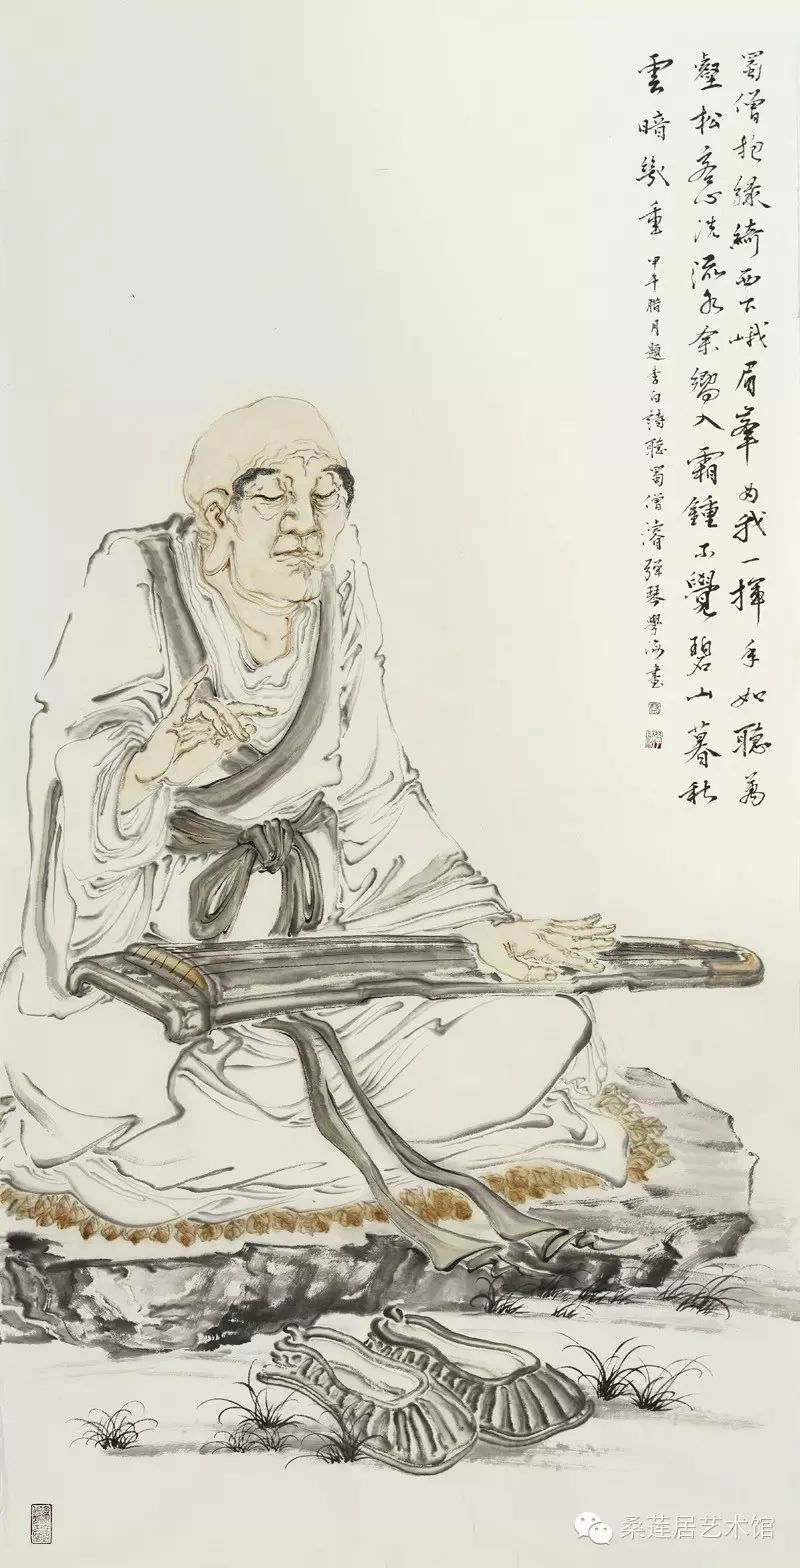 蜀僧抱綠綺西下峨眉峯为我一揮手如聽萬
壑松客心洗流水余響入霜鍾不覺碧山暮秋
雲暗幾重 甲午腊月題李白詩聽蜀僧濬弹琴學海畫
桑莲居艺术馆